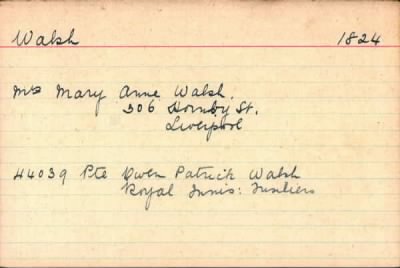 Walsh 1824
Mrs Mary Anne Walsh.
306 Hornby St.
Liverpool
44039 Pte Owen Patrick Walsh
Royal Innis: Fusiliers